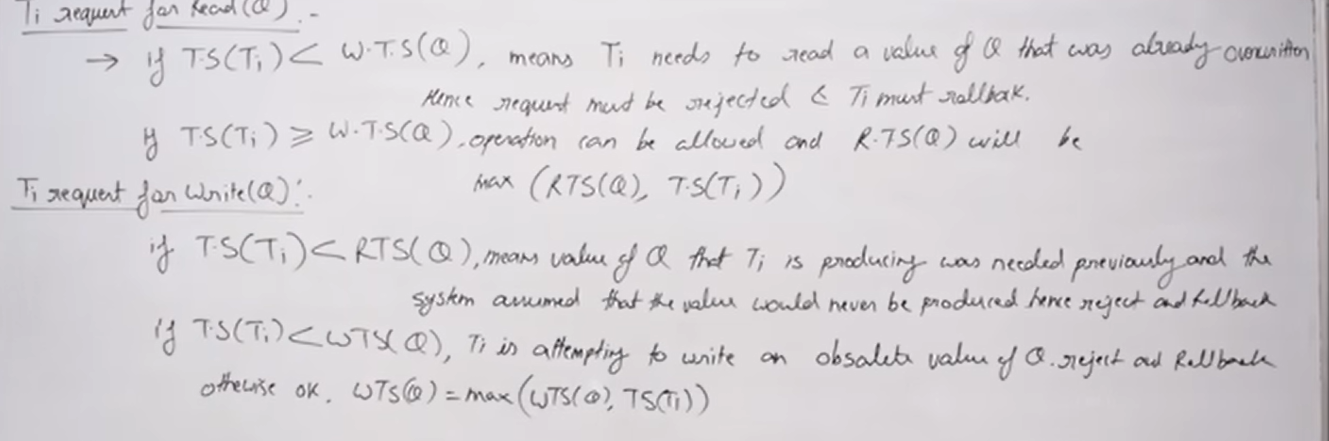 Ti request for Read(Q) :-
→ if T.S(Ti) < W.T.S(Q), means Ti needs to read a value of Q that was already overwritten
Hence request must be rejected & Ti must rollbak.
If T.S(Ti) ≥ W.T.S(Q), operation can be allowed and R.TS(Q) will be
max (RTS(Q), T.S(Ti))
Ti request for Write(Q) :-
if T.S(Ti) < RTS(Q), means value of Q that Ti is producing was needed previously and the
system assumed that the value would never be produced hence reject and Rollback
if T.S(Ti) < WTS(Q), Ti is attempting to write an obsalete value of Q. reject and Rollback
otherwise ok. WTS(Q) = max(WTS(Q), TS(Ti))